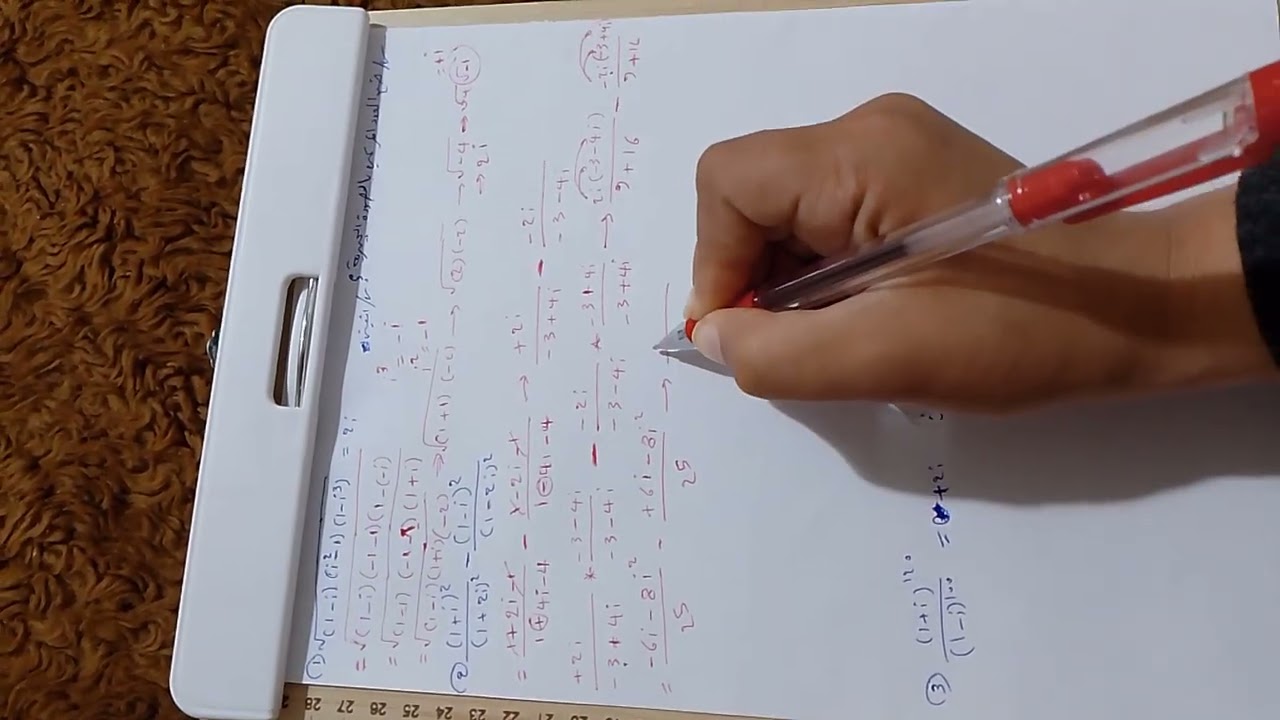 1) √(1-i)(i²-1)(1-i³) = 2i
= √(1-i)(-1-1)(1-(-i)) i³ = -i
i² = -1
= √(1-i)(1+i)(-2) → √(1+1)(-2) → √(2)(-2) → √-4 → √4 √-1 = +i
→ 2i
② (1+i)²/(1+2i)² - (1-i)²/(1-2i)²
= 1+2i-1/1+4i-4 - 1-2i-1/1-4i-4 → +2i/-3+4i - -2i/-3-4i
+2i/-3+4i * -3-4i/-3-4i - -2i/-3-4i * -3+4i/-3+4i → 2i(-3-4i)/9+16 - -2i(-3+4i)/9+16
= -6i-8i²/25 - +6i-8i²/25 →
③ (1+i)¹²⁰/(1-i)¹⁰⁰ =